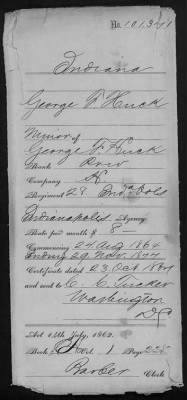 No. 101341
Indiana
George F Huck
Minor of
George F Huck
Rank Priv
Company H
Regiment 29 Inda Vols
Indianapolis Agency
Rate per month $ 8—
Commencing 24 Aug 1864
Ending 29 Nov. 1877
Certificate dated 23 Oct 1867
and sent to C. C. Tucker
Washington
D.C.
Act 14th July, 1862.
Book Vol. 1 Page 225
Barber Clerk